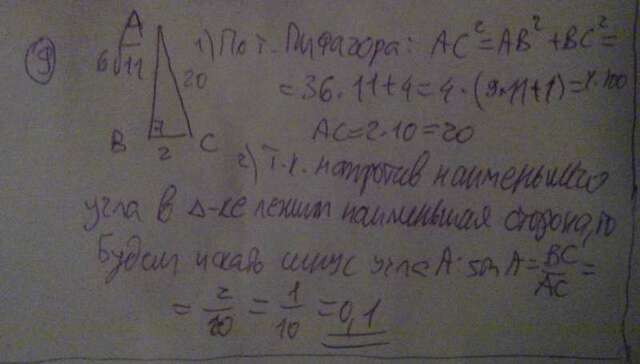 9
A
6√11
20
B
2
C
1) По т. Пифагора: AC²=AB²+BC²=
=36·11+4=4·(9·11+1)=4·100
AC=2·10=20
2) Т.к. напротив наименьшего
угла в Δ-ке лежит наименьшая сторона, то
Будем искать синус угла A: sin A=BC/AC=
=2/20=1/10=0,1